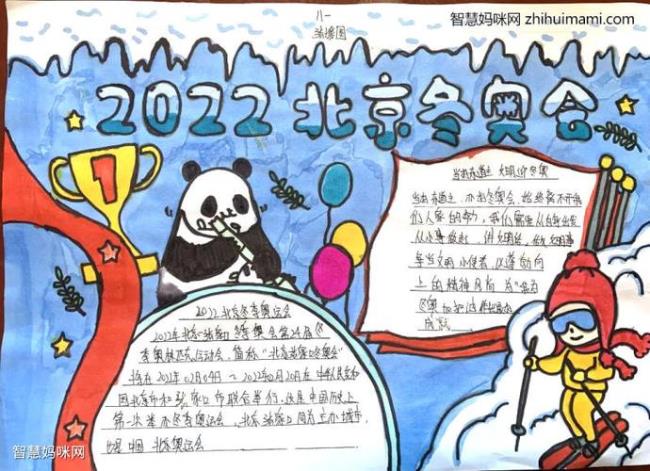 智慧妈咪网 zhihuimami.com
八一
2022北京冬奥会
1
当东道主 文明迎冬奥
当东道主,办好冬奥会,始终离不开我
们人家的努力,我们需要从自身出发
从小事做起,讲文明话,做文明事
争当文明小使者,以蓬勃向
上的精神风貌 为
冬奥加
2022北京冬季奥运会
季奥林匹克运动会,简称"北京
将在2022年02月04日~2022年02月20日在中华人民共和
国北京市和张家口市联合举行,这是中国历史上
第一次举办冬季奥运会,北京张家口同为主办城市,
也是中国 北京奥运会
智慧妈咪网